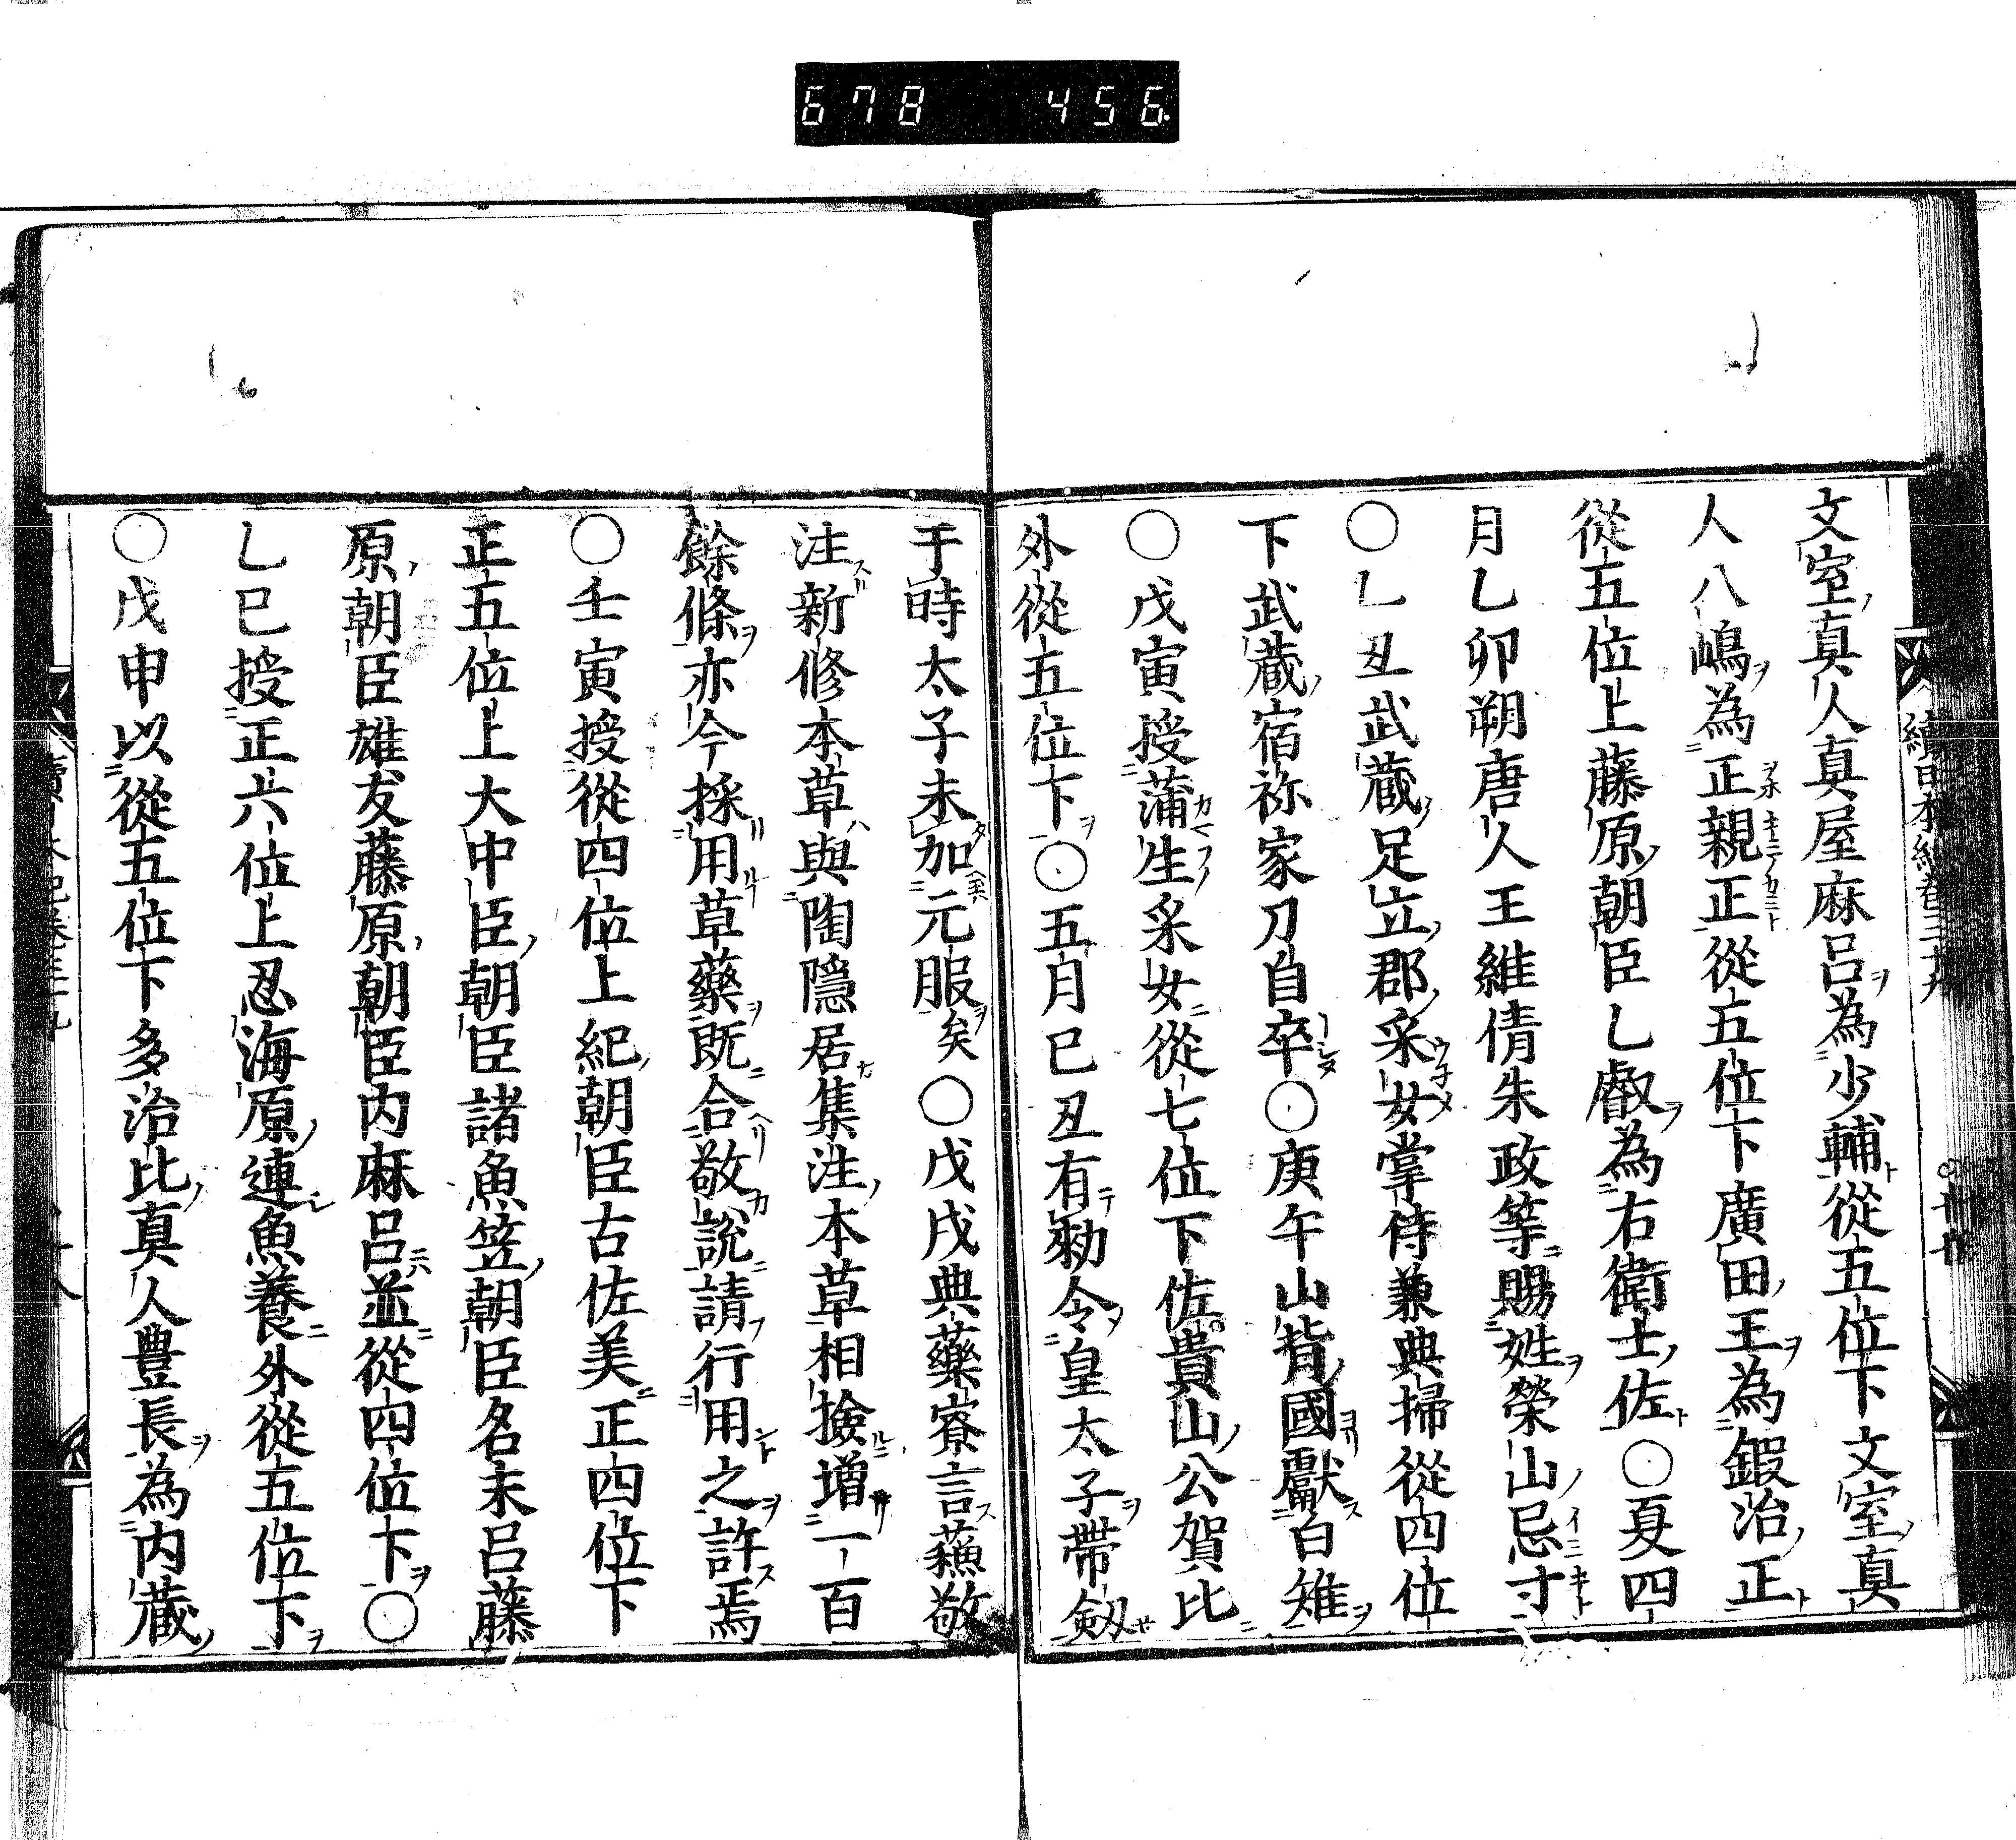 678 456.
文室真人真屋麻呂為少輔從五位下文室真
人八嶋為正親正從五位下廣田王為鍜治正
從五位上藤原朝臣乙叡為右衛士佐○夏四
月乙卯朔唐人王維倩朱政等賜姓榮山忌寸
○乙丑武藏足立郡采女掌侍兼典掃從四位
下武藏宿祢家刀自卒○庚午山背國獻白雉
○戊寅授蒲生采女從七位下佐貴山公賀比
外從五位下○五月己丑有勑令皇太子帶劔
于時太子未加元服矣○戊戌典藥寮言蘓敬
注新修本草與陶隱居集注本草相撿增一百
餘條亦今採用草藥既合敬說請行用之許焉
○壬寅授從四位上紀朝臣古佐美正四位下
正五位上大中臣朝臣諸魚笠朝臣名末呂藤
原朝臣雄友藤原朝臣内麻呂並從四位下○
乙巳授正六位上忍海原連魚養外從五位下
○戊申以從五位下多治比真人豊長為内藏